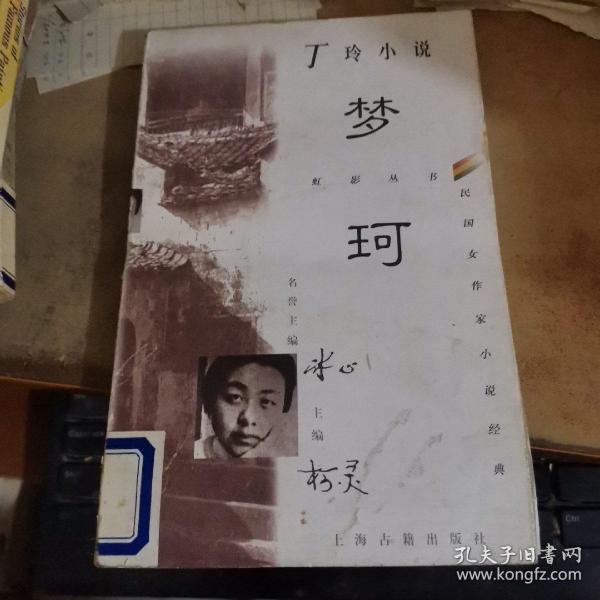 丁玲小说
梦珂
虹影丛书
民国女作家小说经典
名誉主编
冰心
主编
柯灵
上海古籍出版社
Ctrl
孔夫子旧书网
www.kongfz.com